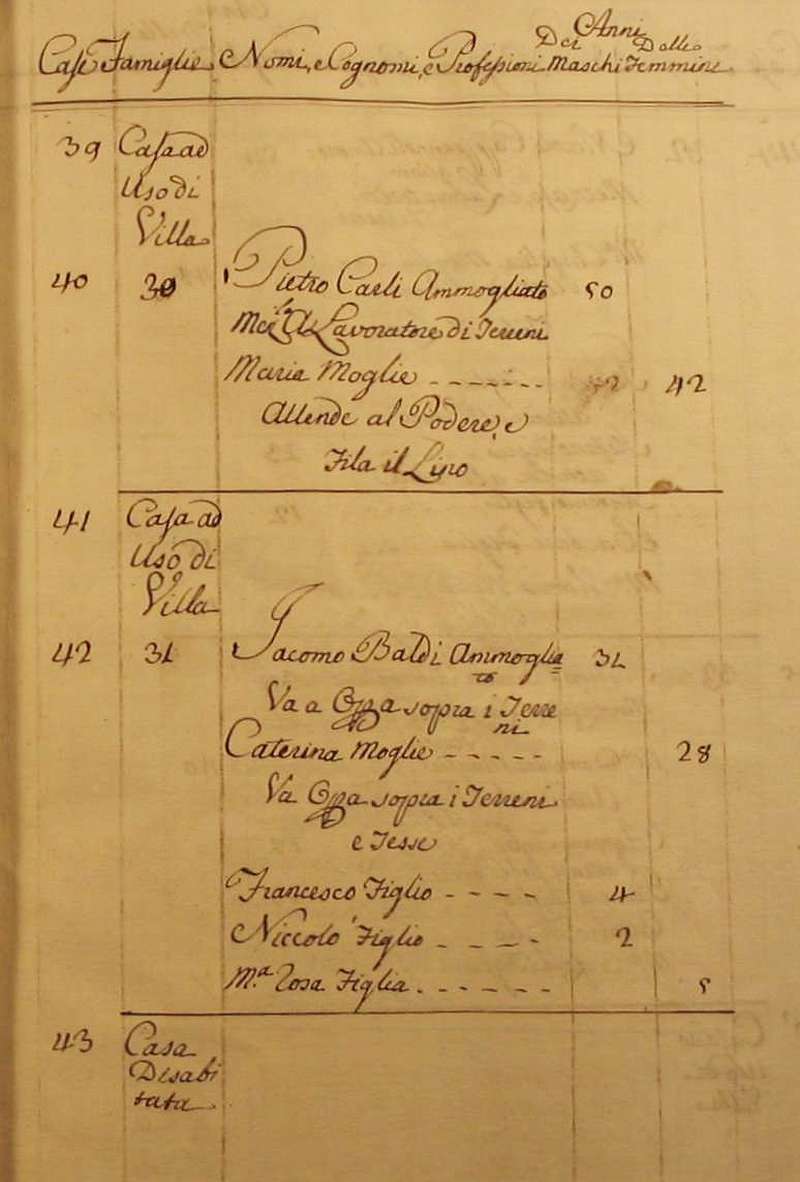 Anni
Dei Delle
Case Famiglie, Nomi, e Cognomi, e Professioni Maschi Femmine
39 Casa ad
Uso di
Villa
40 30 Pietro Carli Ammogliato 50
Lavoratore di Terreni
Maria Moglie 42
Attende al Podere, e
Fila il Lino
41 Casa ad
Uso di
Villa
42 31 Jacomo Baldi Ammoglia 31
to
Va a Opra sopra i Terre
ni
Caterina Moglie 28
Va Opra sopra i Terreni
e Tesse
Francesco Figlio 4
Niccolo Figlio 2
M.a Rosa Figlia 5
43 Casa
Disabi
tata